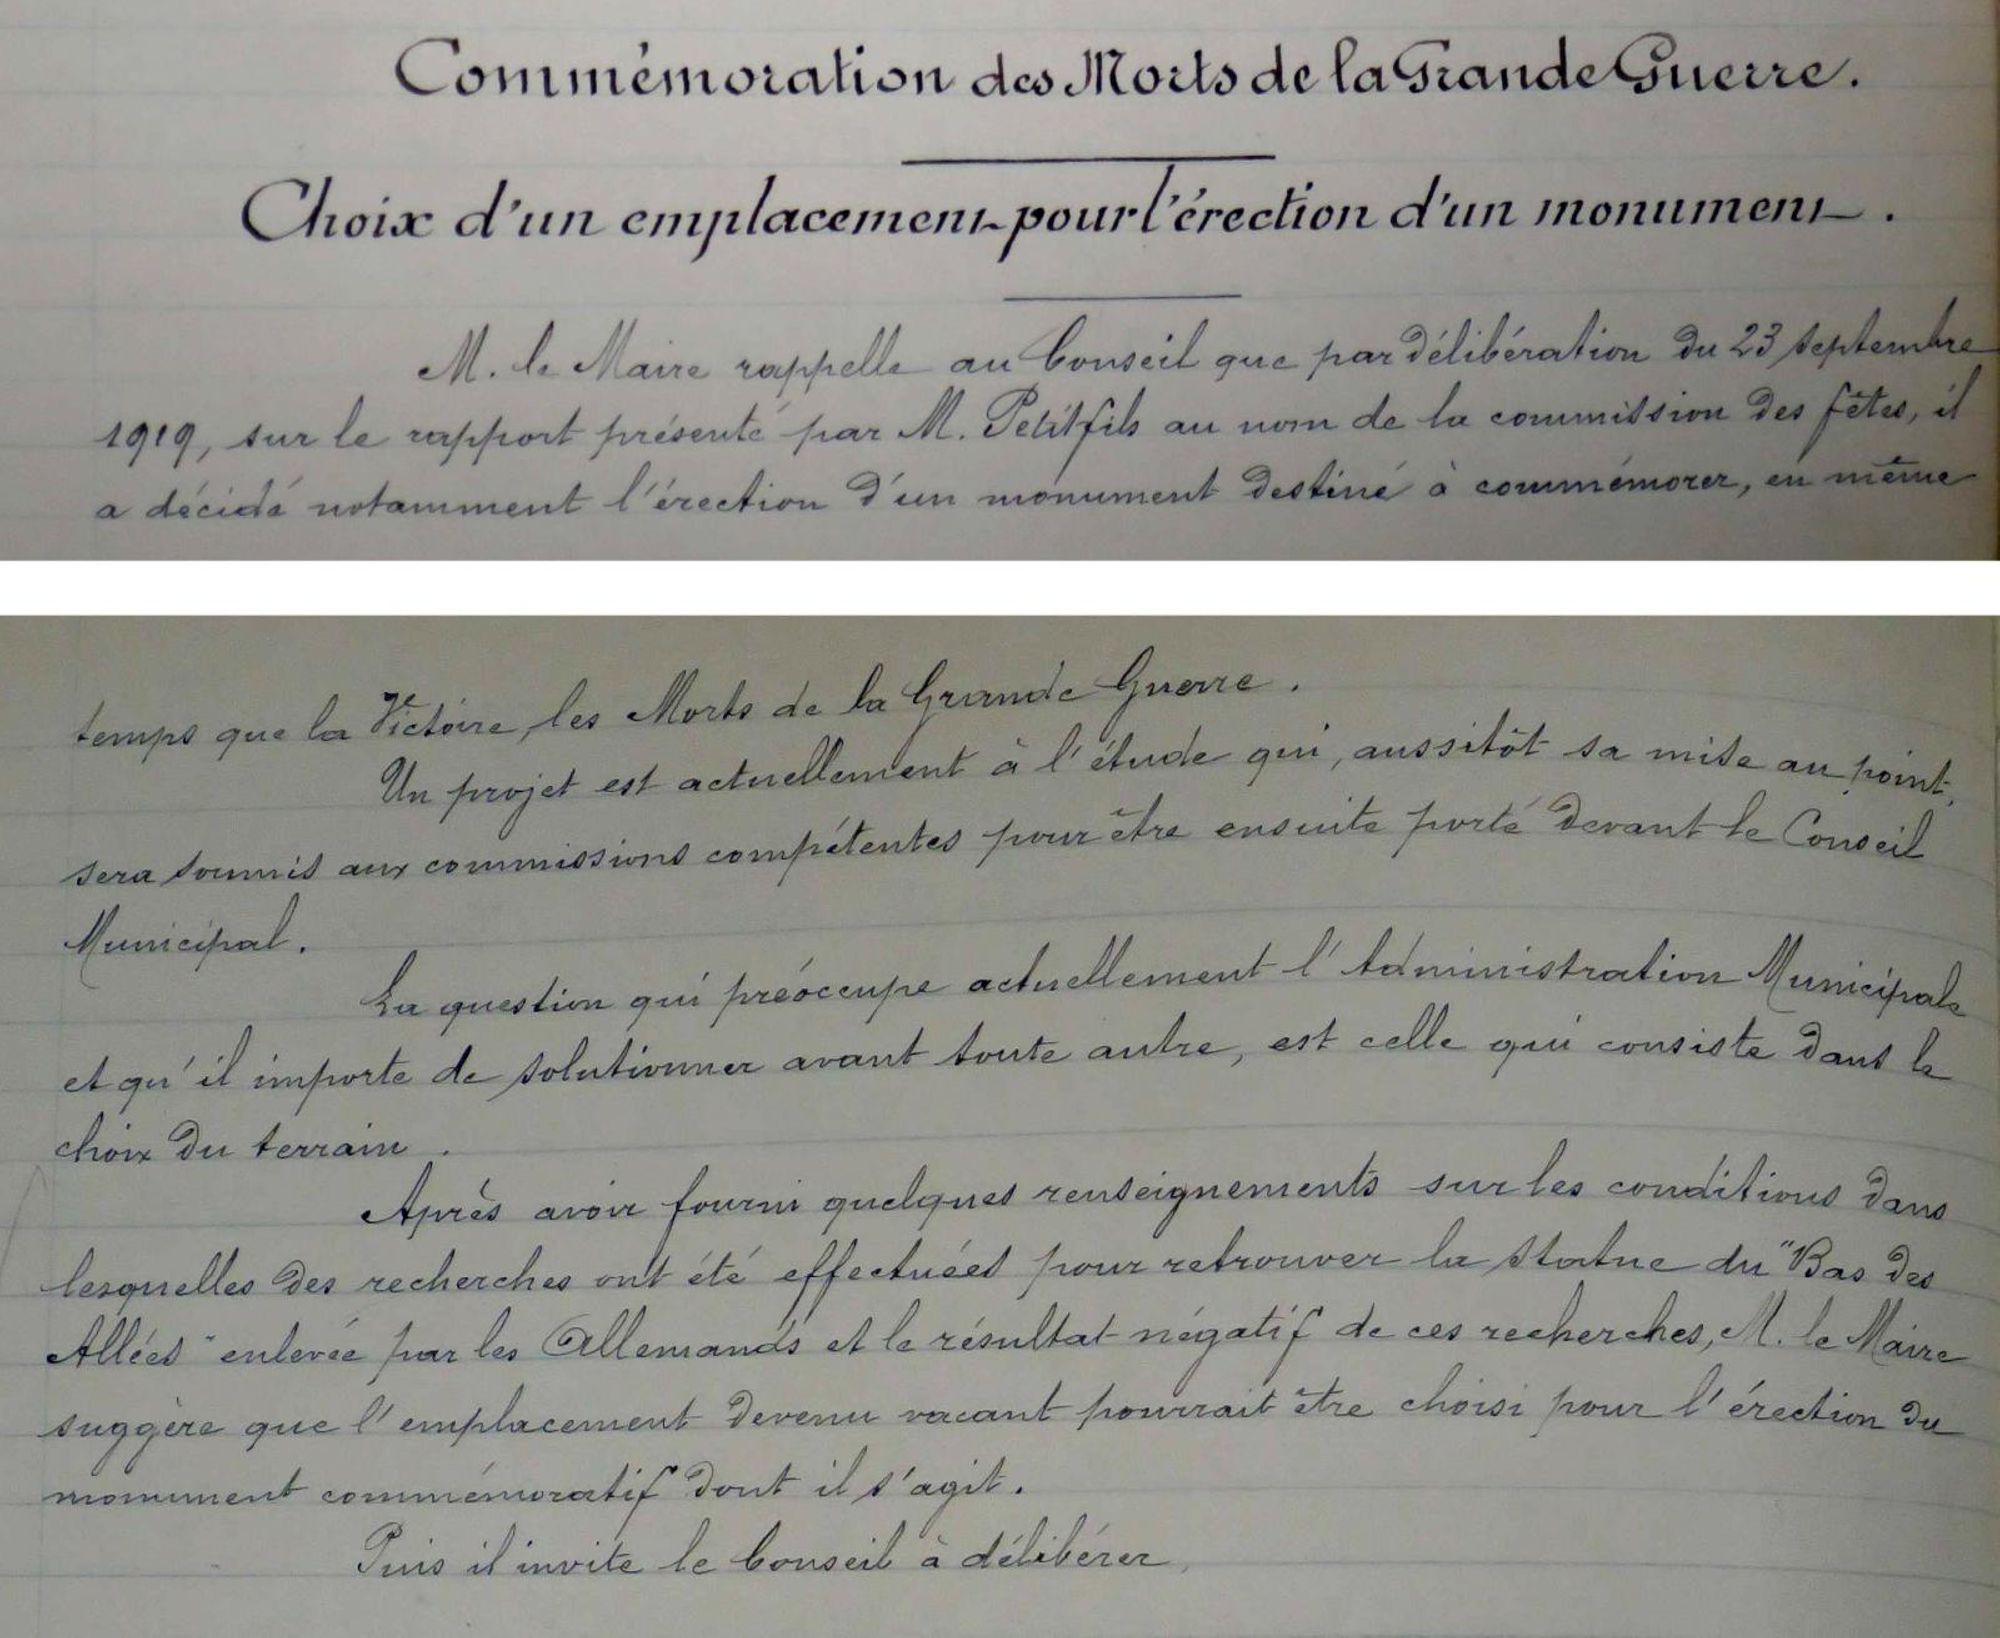 Commémoration des Morts de la Grande Guerre.
Choix d'un emplacement pour l'érection d'un monument.
M. le Maire rappelle au Conseil que par délibération du 23 septembre
1919, sur le rapport présenté par M. Petitfils au nom de la commission des fêtes, il
a décidé notamment l'érection d'un monument destiné à commémorer, en même
temps que la Victoire, les Morts de la Grande Guerre.
Un projet est actuellement à l'étude qui, aussitôt sa mise au point,
sera soumis aux commissions compétentes pour être ensuite porté devant le Conseil
Municipal.
La question qui préoccupe actuellement l'Administration Municipale
et qu'il importe de solutionner avant toute autre, est celle qui consiste dans le
choix du terrain.
Après avoir fourni quelques renseignements sur les conditions dans
lesquelles des recherches ont été effectuées pour retrouver la statue du "Bas des
Allées" enlevée par les Allemands et le résultat négatif de ces recherches, M. le Maire
suggère que l'emplacement devenu vacant pourrait être choisi pour l'érection du
monument commémoratif dont il s'agit.
Puis il invite le Conseil à délibérer.